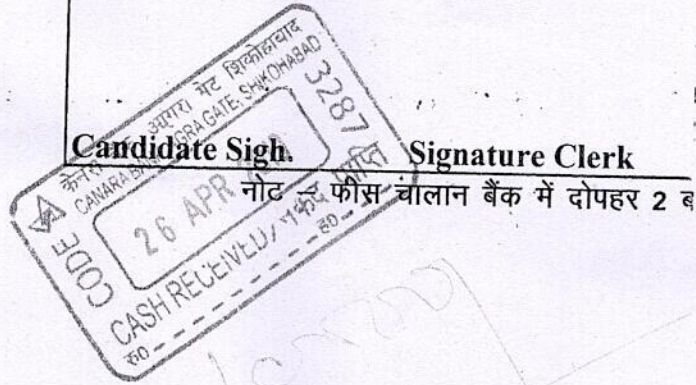 Candidate Sigh. Signature Clerk
नोट – फीस चालान बैंक में दोपहर 2
केनरा बैंक आगरा गेट शिकोहाबाद
CANARA BANK AGRA GATE, SHIKOHABAD
CODE 3287
26 APR
CASH RECEIVED/ नकद प्राप्ति
रु0 रु0